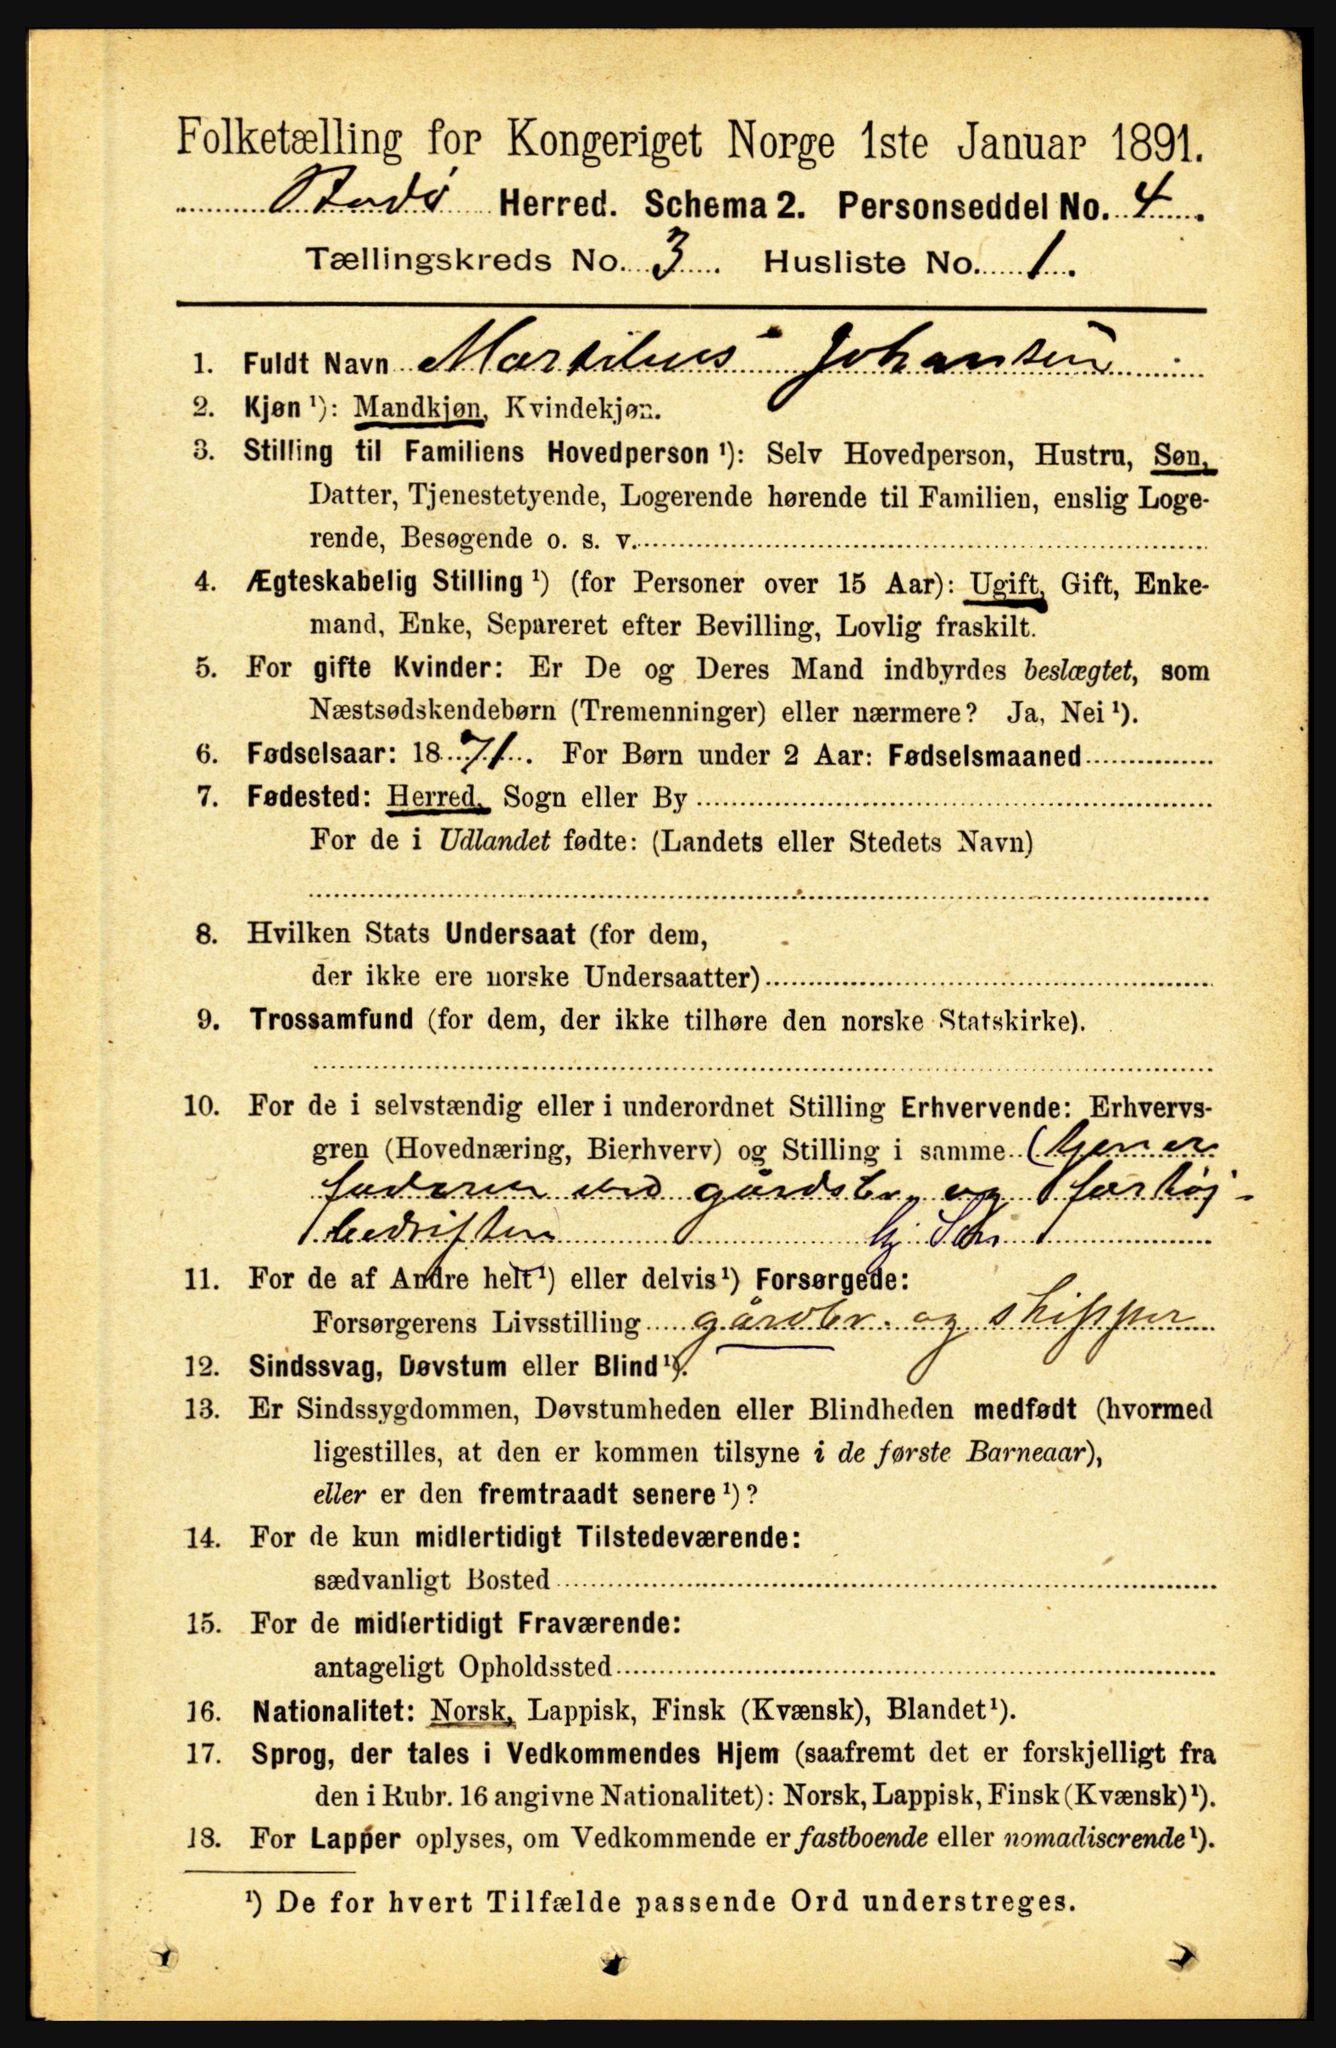 Folketælling for Kongeriget Norge 1ste Januar 1891.
Stodø Herred. Schema 2. Personseddel No. 4.
Tællingskreds No. 3. Husliste No. 1.
1. Fuldt Navn Martilius Johansen
2. Kjøn ¹): Mandkjøn, Kvindekjøn.
3. Stilling til Familiens Hovedperson ¹): Selv Hovedperson, Hustru, Søn,
Datter, Tjenestetyende, Logerende hørende til Familien, enslig Loge-
rende, Besøgende o. s. v.
4. Ægteskabelig Stilling ¹) (for Personer over 15 Aar): Ugift, Gift, Enke-
mand, Enke, Separeret efter Bevilling, Lovlig fraskilt.
5. For gifte Kvinder: Er De og Deres Mand indbyrdes beslægtet, som
Næstsødskendebørn (Tremenninger) eller nærmere? Ja, Nei ¹).
6. Fødselsaar: 1871. For Børn under 2 Aar: Fødselsmaaned
7. Fødested: Herred, Sogn eller By
For de i Udlandet fødte: (Landets eller Stedets Navn)
8. Hvilken Stats Undersaat (for dem,
der ikke ere norske Undersaatter)
9. Trossamfund (for dem, der ikke tilhøre den norske Statskirke).
10. For de i selvstændig eller i underordnet Stilling Erhvervende: Erhvervs-
gren (Hovednæring, Bierhverv) og Stilling i samme (tjener
faderen ved gårdsbr. og fartøj-
bedriften Gj Søn
11. For de af Andre helt ¹) eller delvis ¹) Forsørgede:
Forsørgerens Livsstilling gårdbr. og skipper
12. Sindssvag, Døvstum eller Blind ¹).
13. Er Sindssygdommen, Døvstumheden eller Blindheden medfødt (hvormed
ligestilles, at den er kommen tilsyne i de første Barneaar),
eller er den fremtraadt senere ¹)?
14. For de kun midlertidigt Tilstedeværende:
sædvanligt Bosted
15. For de midlertidigt Fraværende:
antageligt Opholdssted
16. Nationalitet: Norsk, Lappisk, Finsk (Kvænsk), Blandet ¹).
17. Sprog, der tales i Vedkommendes Hjem (saafremt det er forskjelligt fra
den i Rubr. 16 angivne Nationalitet): Norsk, Lappisk, Finsk (Kvænsk) ¹).
18. For Lapper oplyses, om Vedkommende er fastboende eller nomadiserende ¹).
¹) De for hvert Tilfælde passende Ord understreges.